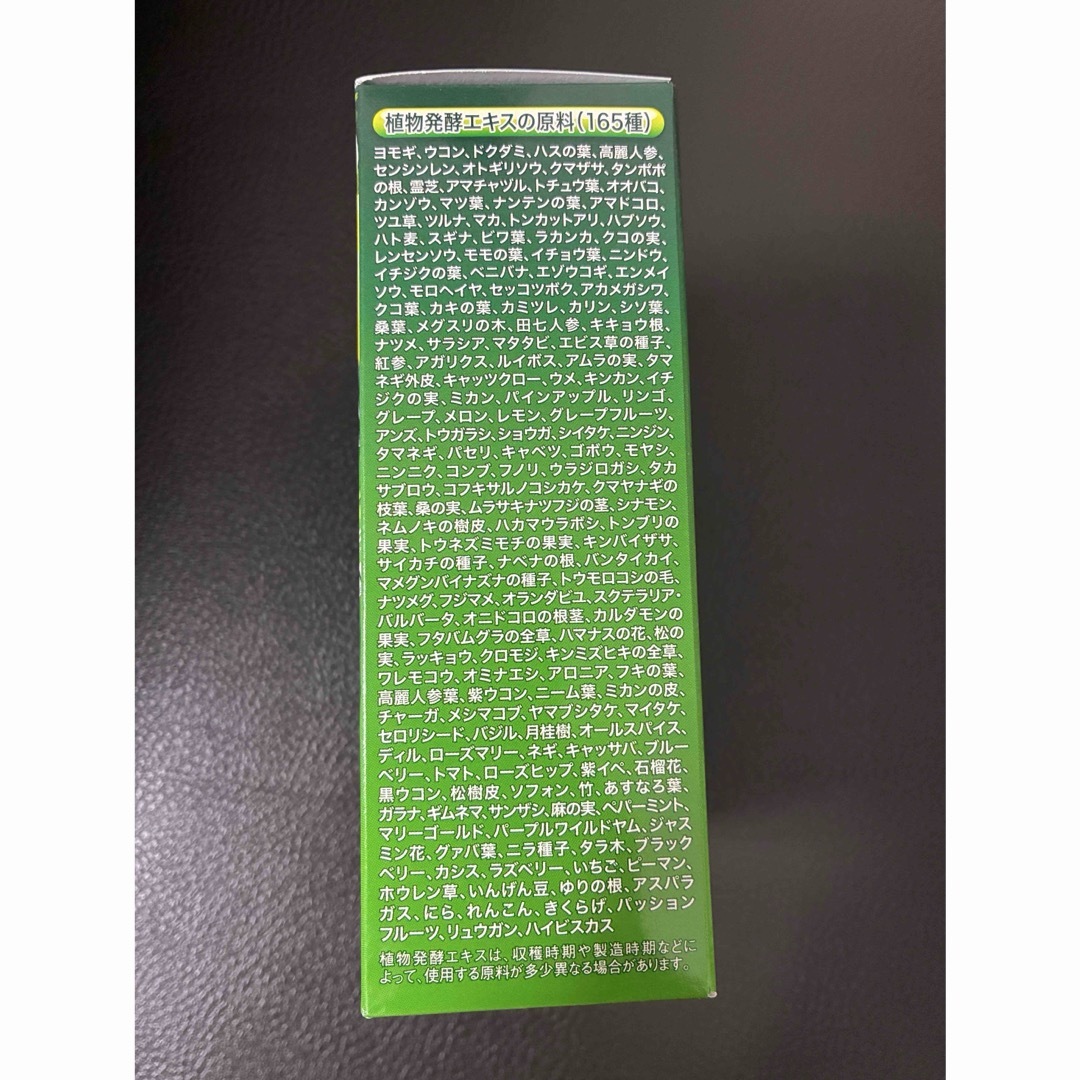 植物発酵エキスの原料(165種)
ヨモギ、ウコン、ドクダミ、ハスの葉、高麗人参、
センシンレン、オトギリソウ、クマザサ、タンポポ
の根、霊芝、アマチャヅル、トチュウ葉、オオバコ、
カンゾウ、マツ葉、ナンテンの葉、アマドコロ、
ツユ草、ツルナ、マカ、トンカットアリ、ハブソウ、
ハト麦、スギナ、ビワ葉、ラカンカ、クコの実、
レンセンソウ、モモの葉、イチョウ葉、ニンドウ、
イチジクの葉、ベニバナ、エゾウコギ、エンメイ
ソウ、モロヘイヤ、セッコツボク、アカメガシワ、
クコ葉、カキの葉、カミツレ、カリン、シソ葉、
桑葉、メグスリの木、田七人参、キキョウ根、
ナツメ、サラシア、マタタビ、エビス草の種子、
紅参、アガリクス、ルイボス、アムラの実、タマ
ネギ外皮、キャッツクロー、ウメ、キンカン、イチ
ジクの実、ミカン、パインアップル、リンゴ、
グレープ、メロン、レモン、グレープフルーツ、
アンズ、トウガラシ、ショウガ、シイタケ、ニンジン、
タマネギ、パセリ、キャベツ、ゴボウ、モヤシ、
ニンニク、コンブ、フノリ、ウラジロガシ、タカ
サブロウ、コフキサルノコシカケ、クマヤナギの
枝葉、桑の実、ムラサキナツフジの茎、シナモン、
ネムノキの樹皮、ハカマウラボシ、トンブリの
果実、トウネズミモチの果実、キンバイザサ、
サイカチの種子、ナベナの根、バンタイカイ、
マメグンバイナズナの種子、トウモロコシの毛、
ナツメグ、フジマメ、オランダビユ、スクテラリア・
バルバータ、オニドコロの根茎、カルダモンの
果実、フタバムグラの全草、ハマナスの花、松の
実、ラッキョウ、クロモジ、キンミズヒキの全草、
ワレモコウ、オミナエシ、アロニア、フキの葉、
高麗人参葉、紫ウコン、ニーム葉、ミカンの皮、
チャーガ、メシマコブ、ヤマブシタケ、マイタケ、
セロリシード、バジル、月桂樹、オールスパイス、
ディル、ローズマリー、ネギ、キャッサバ、ブルー
ベリー、トマト、ローズヒップ、紫イペ、石榴花、
黒ウコン、松樹皮、ソフォン、竹、あすなろ葉、
ガラナ、ギムネマ、サンザシ、麻の実、ペパーミント、
マリーゴールド、パープルワイルドヤム、ジャス
ミン花、グァバ葉、ニラ種子、タラ木、ブラック
ベリー、カシス、ラズベリー、いちご、ピーマン、
ホウレン草、いんげん豆、ゆりの根、アスパラ
ガス、にら、れんこん、きくらげ、パッション
フルーツ、リュウガン、ハイビスカス
植物発酵エキスは、収穫時期や製造時期などに
よって、使用する原料が多少異なる場合があります。